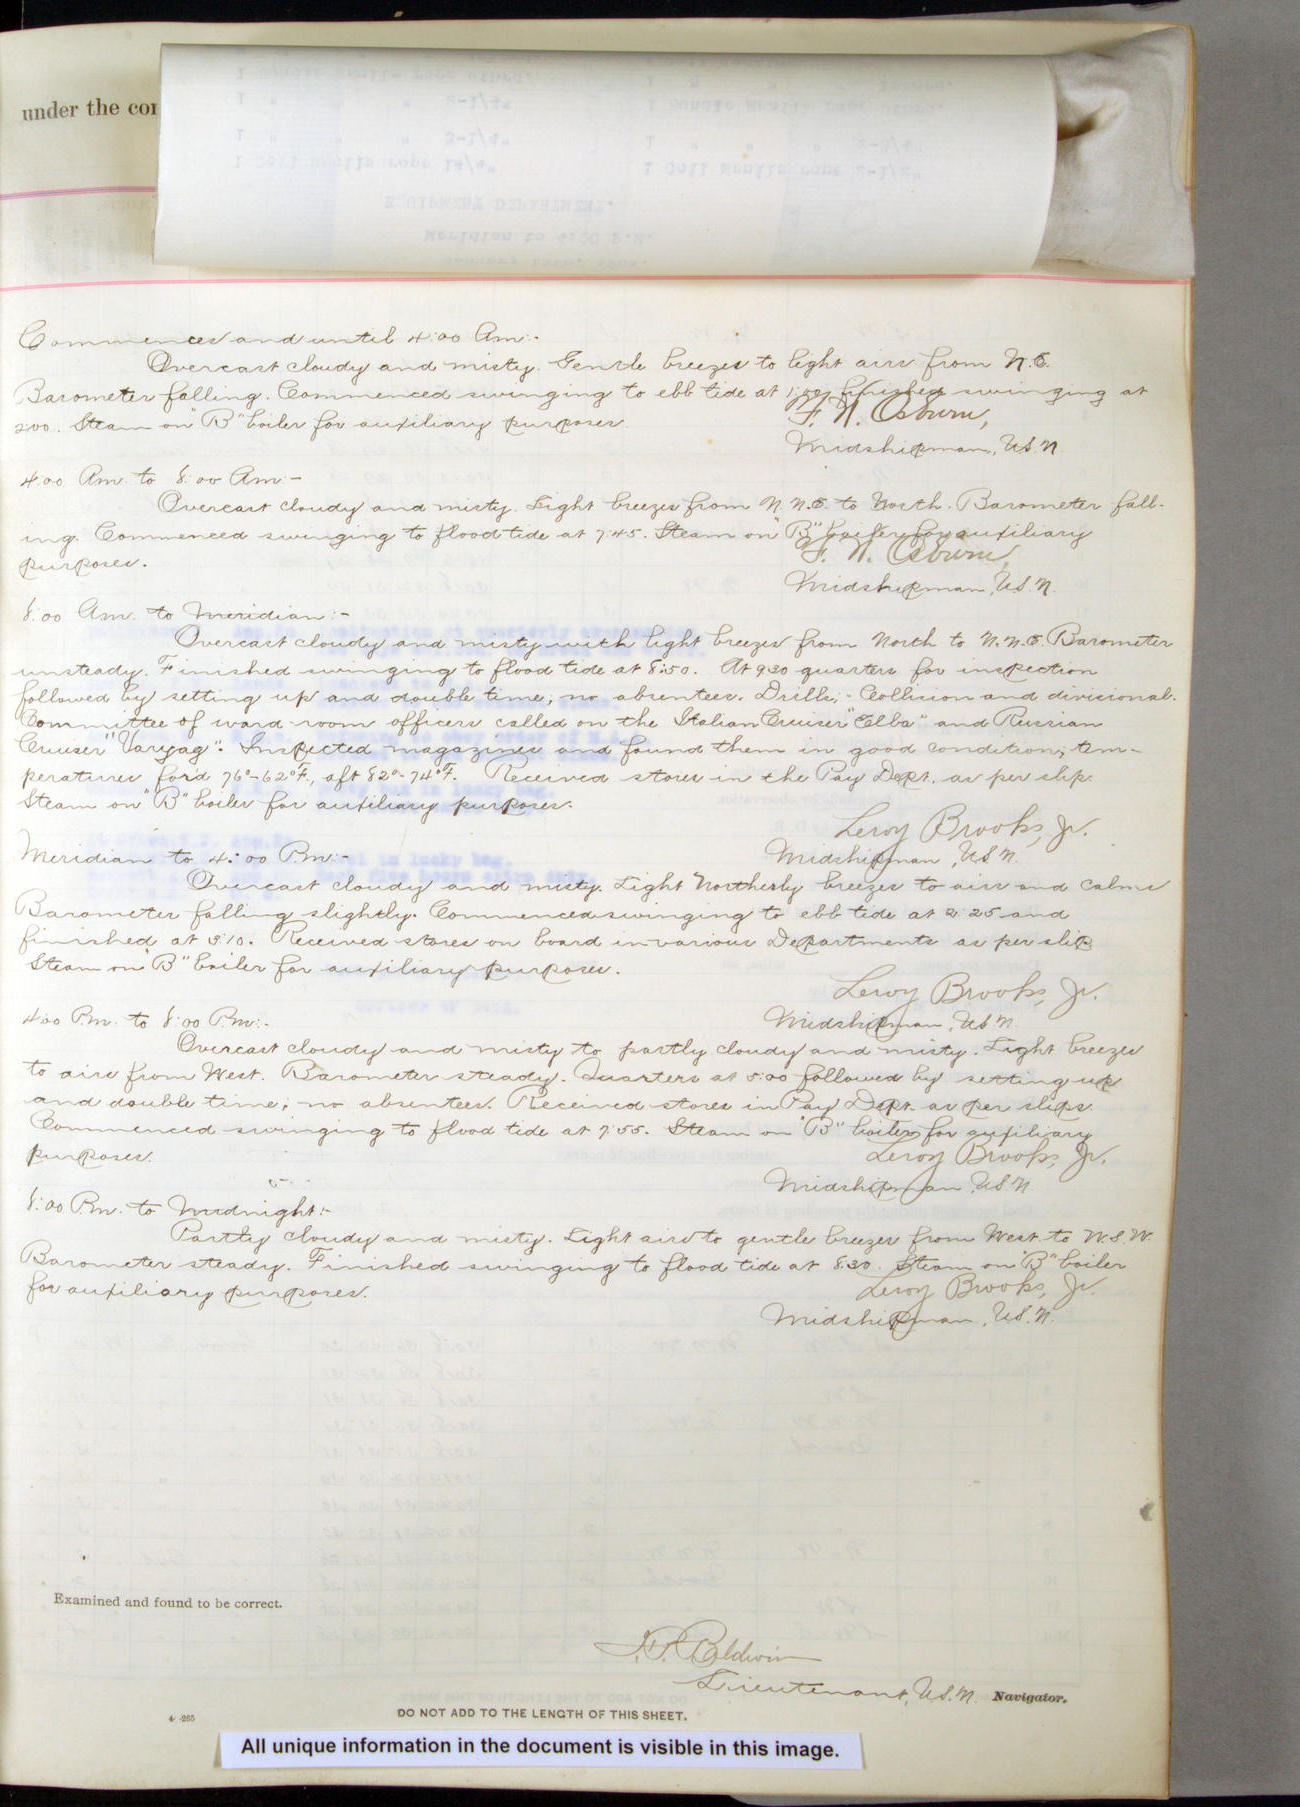 under the con
Commences and until 4:00 Am:-
Overcast cloudy and misty. Gentle breezes to light airs from N.E.
Barometer falling. Commenced swinging to ebb tide at 1:00, finished swinging at
2:00. Steam on "B" boiler for auxiliary purposes.
F. N. Osburn,
Midshipman, U.S.N.
4:00 Am. to 8:00 Am:-
Overcast cloudy and misty. Light breezes from N.N.E. to North. Barometer fall-
ing. Commenced swinging to flood tide at 7:45. Steam on "B" boiler for auxiliary
purposes.
F. N. Osburn,
Midshipman, U.S.N.
8:00 Am. to Meridian:-
Overcast cloudy and misty with light breezes from North to N.N.E. Barometer
unsteady. Finished swinging to flood tide at 8:50. At 9:30 quarters for inspection
followed by setting up and double time; no absentees. Drills;- Collision and divisional.
Committee of ward-room officers called on the Italian Cruiser "Elba" and Russian
Cruiser "Varyag". Inspected magazines and found them in good condition; tem-
peratures for'd 76°-62°F., aft 82°-74°F. Received stores in the Pay Dept. as per slip.
Steam on "B" boiler for auxiliary purposes.
Leroy Brooks, Jr.
Midshipman, U.S.N.
Meridian to 4:00 P.m:-
Overcast cloudy and misty. Light Northerly breezes to airs and calms
Barometer falling slightly. Commenced swinging to ebb tide at 2:25 and
finished at 3:10. Received stores on board in various Departments as per slip
Steam on "B" boiler for auxiliary purposes.
Leroy Brooks, Jr.
Midshipman, U.S.N.
4:00 P.m. to 8:00 P.m:-
Overcast cloudy and misty to partly cloudy and misty. Light breezes
to airs from West. Barometer steady. Quarters at 5:00 followed by setting up
and double time; no absentees. Received stores in Pay Dept. as per slips.
Commenced swinging to flood tide at 7:55. Steam on "B" boiler for auxiliary
purposes.
Leroy Brooks, Jr.
Midshipman, U.S.N.
8:00 P.m. to Midnight:-
Partly cloudy and misty. Light airs to gentle breezes from West to W.S.W.
Barometer steady. Finished swinging to flood tide at 8:30. Steam on "B" boiler
for auxiliary purposes.
Leroy Brooks, Jr.
Midshipman, U.S.N.
Examined and found to be correct.
Baldwin
Lieutenant, U.S.N. Navigator.
DO NOT ADD TO THE LENGTH OF THIS SHEET.
All unique information in the document is visible in this image.